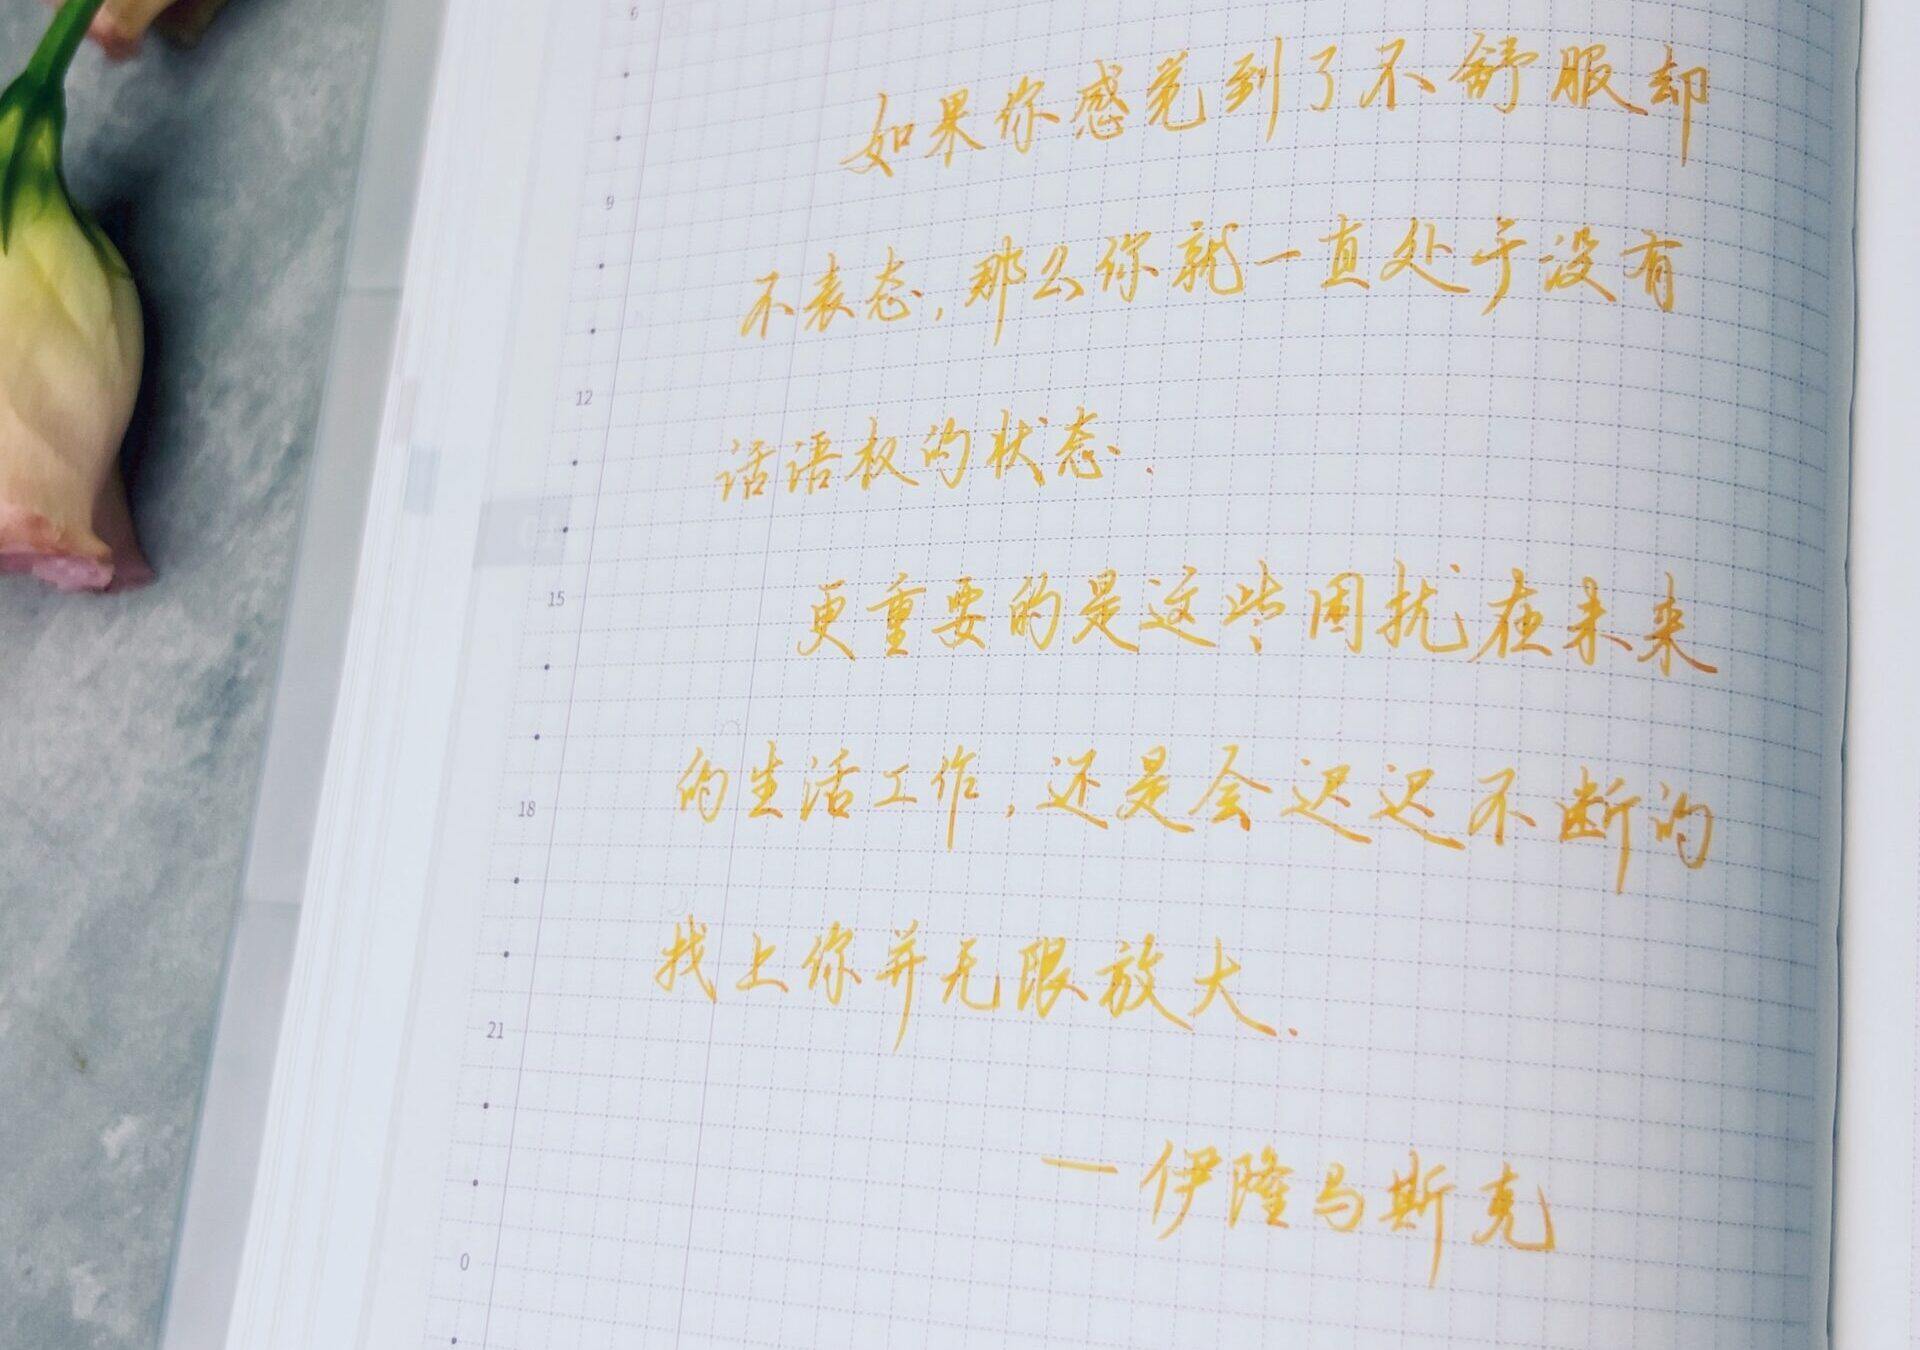 6
如果你感觉到了不舒服却
9
不表态，那么你就一直处于没有
12
话语权的状态.
15
更重要的是这些困扰在未来
的生活工作，还是会迟迟不断的
18
找上你并无限放大.
21
一伊隆马斯克
0